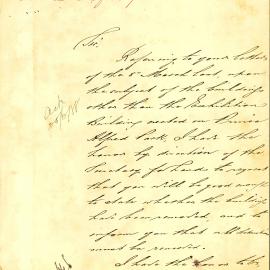 Sir,
Referring to your letter
of the 8th March last, upon
the subject of the buildings
other than the Exhibition
Building erected on Prince
Alfred Park, I have the
honor by direction of the
Secretary for Lands to request
that you will be good enough
to state whether the buildings
have been removed, and to
inform you that all
must be removed.
I have the honor to be